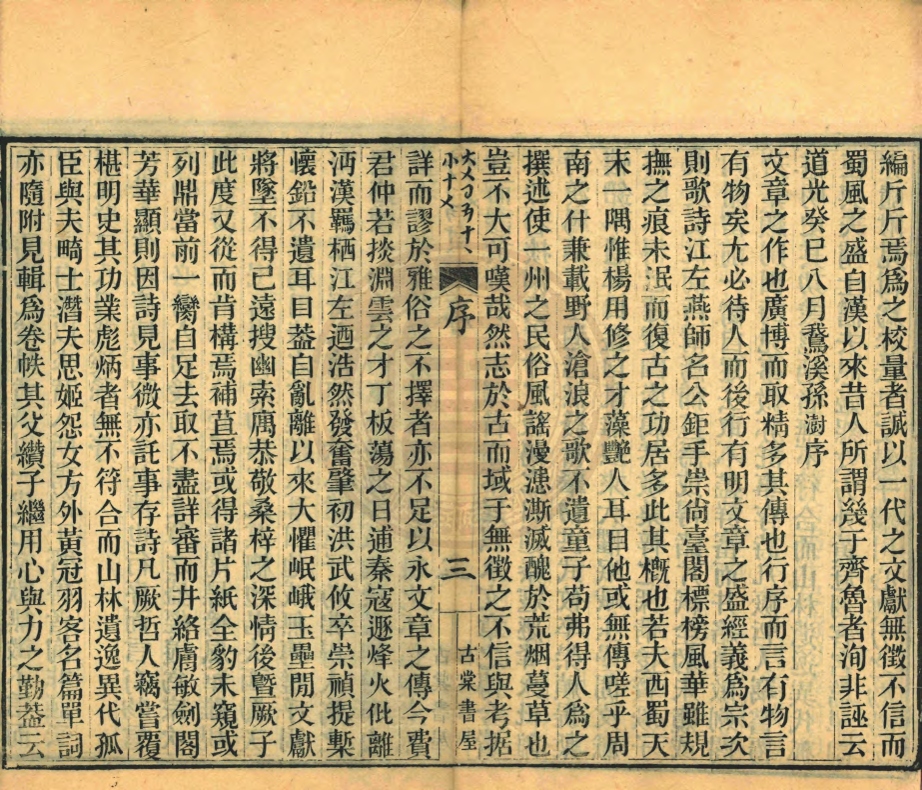 編斤斤焉爲之校量者誠以一代之文獻無徵不信而
蜀風之盛自漢以來昔人所謂幾于齊魯者洵非誣云
道光癸巳八月鵞溪孫澍序
文章之作也廣博而取精多其傳也行序而言有物言
有物矣尤必待人而後行有明文章之盛經義爲宗次
則歌詩江左燕師名公鉅手崇尙臺閣標榜風華雖規
撫之痕未泯而復古之功居多此其槪也若夫西蜀天
末一隅惟楊用修之才藻艷人耳目他或無傳嗟乎周
南之什兼載野人滄浪之歌不遺童子苟弗得人爲之
撰述使一州之民俗風謠漫漶澌滅醜於荒烟蔓草也
豈不大可嘆哉然志於古而域于無徵之不信與考据
序
三
古棠書屋
詳而謬於雅俗之不擇者亦不足以永文章之傳今費
君仲若掞淵雲之才丁板蕩之日逋秦寇遯烽火仳離
沔漢羈栖江左迺浩然發奮肇初洪武攸卒崇禎提槧
懷鉛不遺耳目葢自亂離以來大懼岷峨玉壘閒文獻
將墜不得已遠搜幽索厲恭敬桑梓之深情後曁厥子
此度又從而肯構焉補苴焉或得諸片紙全豹未窺或
列鼎當前一臠自足去取不盡詳審而井絡膚敏劍閣
芳華顯則因詩見事微亦託事存詩凡厥哲人竊嘗覆
椹明史其功業彪炳者無不符合而山林遺逸異代孤
臣與夫畸士濳夫思姬怨女方外黃冠羽客名篇單詞
亦隨附見輯爲卷帙其父纘子繼用心與力之勤葢云